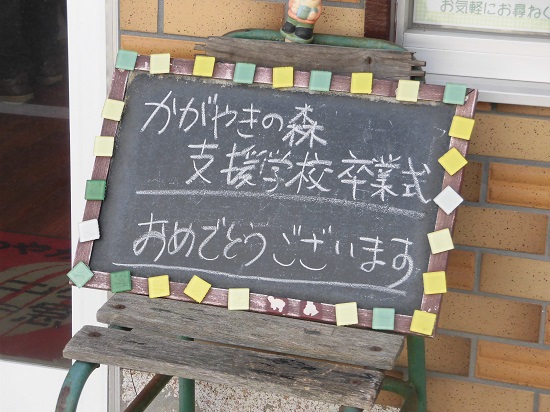 お気軽にお尋ねく
かがやきの森
支援学校 卒業式
おめでとうございます